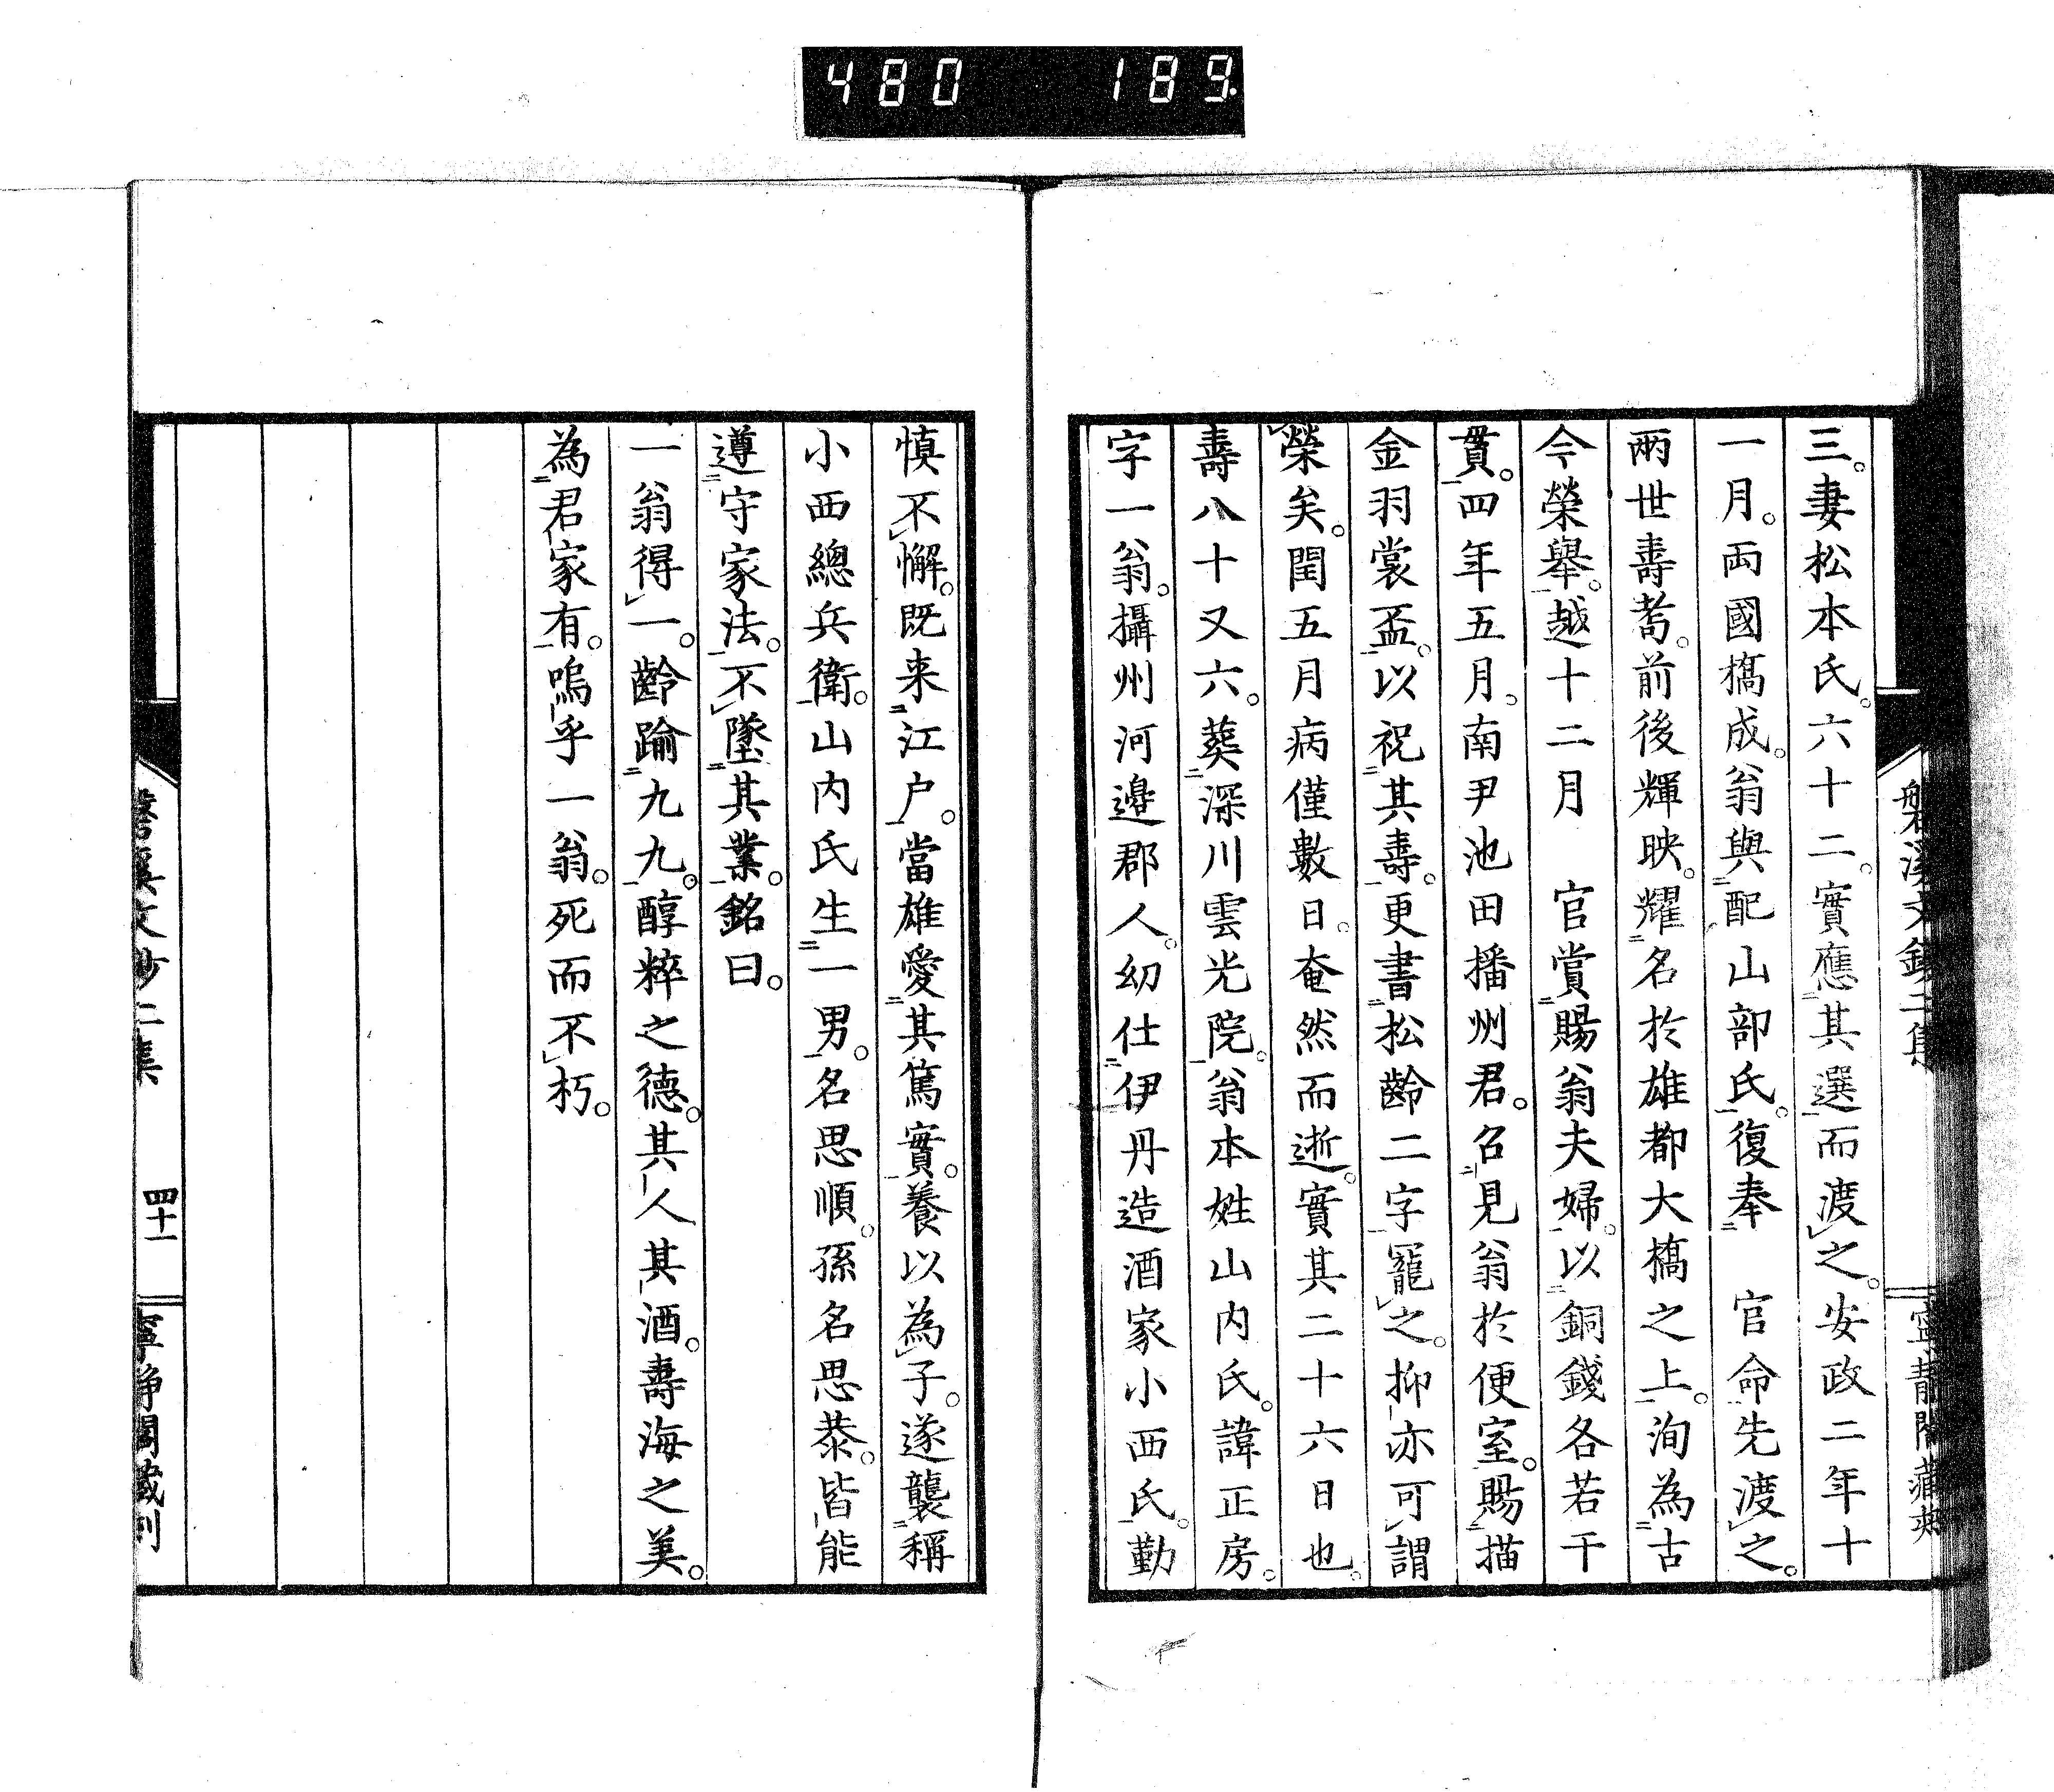 480 189.
三。妻松本氏。六十二。實應其選而渡之。安政二年十
一月。両國橋成。翁與配山部氏。復奉　官命先渡之。
兩世壽耇。前後輝映。耀名於雄都大橋之上。洵為古
今榮舉。越十二月　官賞賜翁夫婦。以銅錢各若干
貫。四年五月。南尹池田播州君。召見翁於便室。賜描
金羽裳盃。以祝其壽。更書松齡二字寵之。抑亦可謂
榮矣。閏五月病僅數日。奄然而逝。實其二十六日也。
壽八十又六。葬深川雲光院。翁本姓山内氏。諱正房。
字一翁。攝州河邉郡人。幼仕伊丹造酒家小西氏。勤
慎不懈。既来江户。當雄愛其篤實。養以為子。遂襲稱
小西總兵衛。山内氏生一男。名思順。孫名思恭。皆能
遵守家法。不墜其業。銘曰。
一翁得一。齡踰九九。醇粹之德。其人其酒。壽海之美。
為君家有。嗚乎一翁。死而不朽。
磐溪文鈔二集
四十一
寧静閣藏刋